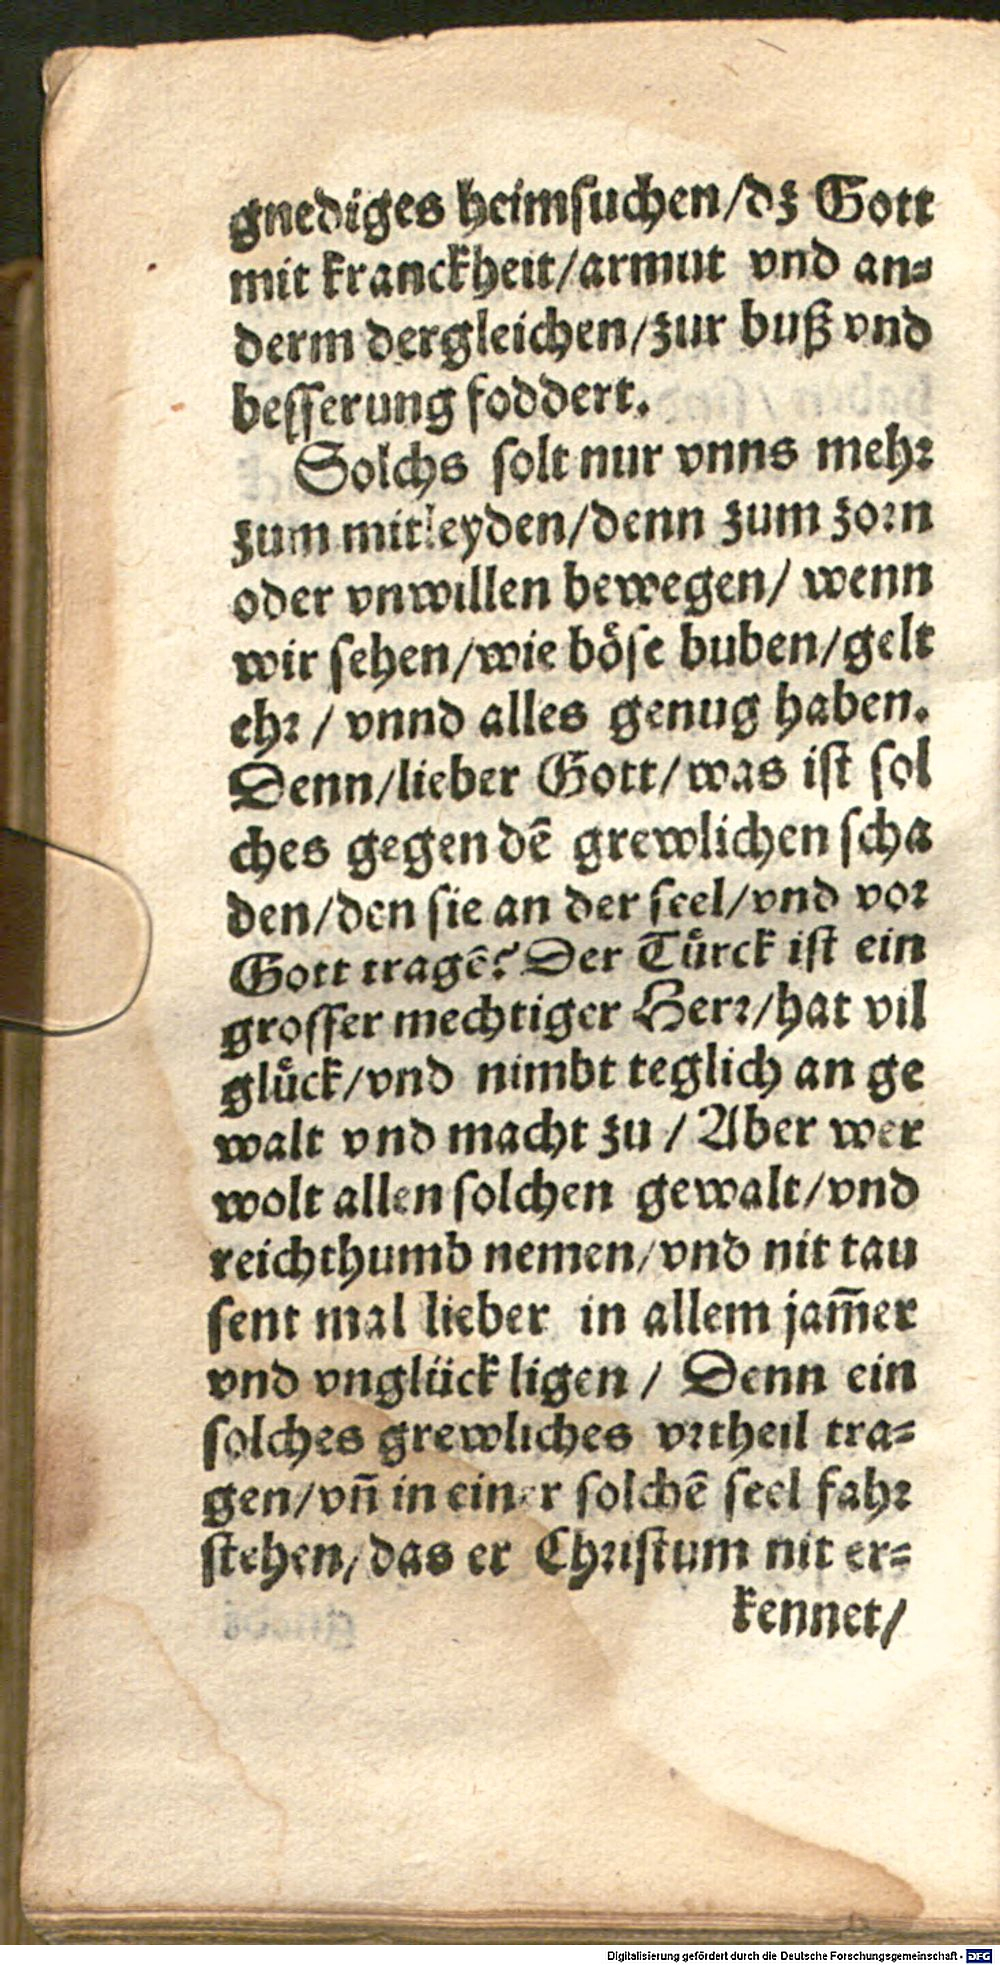 gnediges heimsuchen/dz Gott
mit kranckheit/armut vnd an⸗
derm dergleichen/zur buß vnd
besserung foddert.
Solchs solt nur vnns mehr
zum mitleyden/denn zum zorn
oder vnwillen bewegen/ wenn
wir sehen/wie böse buben/gelt
ehr / vnnd alles genug haben.
Denn/lieber Gott/was ist sol
ches gegen dẽ grewlichen scha
den/den sie an der seel/vnd vor
Gott tragẽ? Der Türck ist ein
grosser mechtiger Herr/hat vil
glück/vnd nimbt teglich an ge
walt vnd macht zu / Aber wer
wolt allen solchen gewalt/vnd
reichthumb nemen/vnd nit tau
sent mal lieber in allem jam̃er
vnd vnglück ligen / Denn ein
solches grewliches vrtheil tra⸗
gen/vñ in einer solchẽ seel fahr
stehen/das er Christum nit er⸗
kennet/
Digitalisierung gefördert durch die Deutsche Forschungsgemeinschaft - DFG